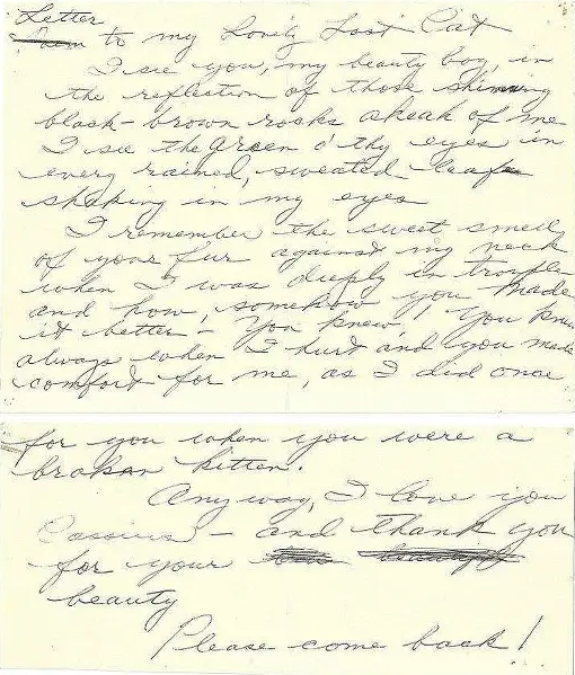 Letter
Poem to my Lovely Lost Cat
I see you, my beauty boy, in
the reflection of those shinning
black-brown rocks ahead of me
I see the green o' thy eyes in
every rained, sweated leaf
shaking in my eyes
I remember the sweet smell
of your fur against my neck
when I was deeply in trouble
and how, somehow you made
it better - You knew, You knew
always when I hurt and you made
comfort for me, as I did once
for you when you were a
broken kitten.
Any way, I love you
Cassius - and thank you
for your
beauty
Please come back!